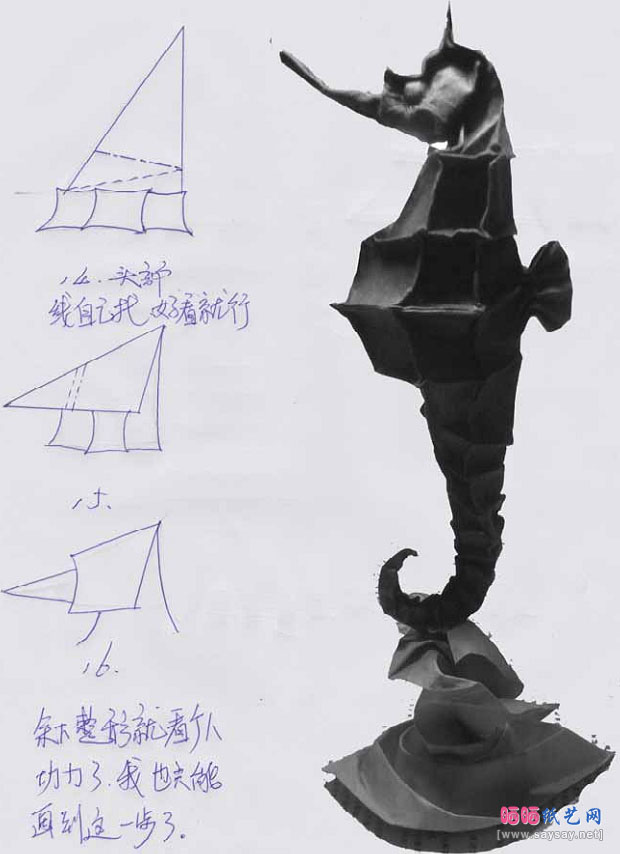 14. 头部
线自己找 好看就行
15.
16.
余下整形就看个人
功力了.我也只能
画到这一步了.
晒晒纸艺网
[www.saysay.net]